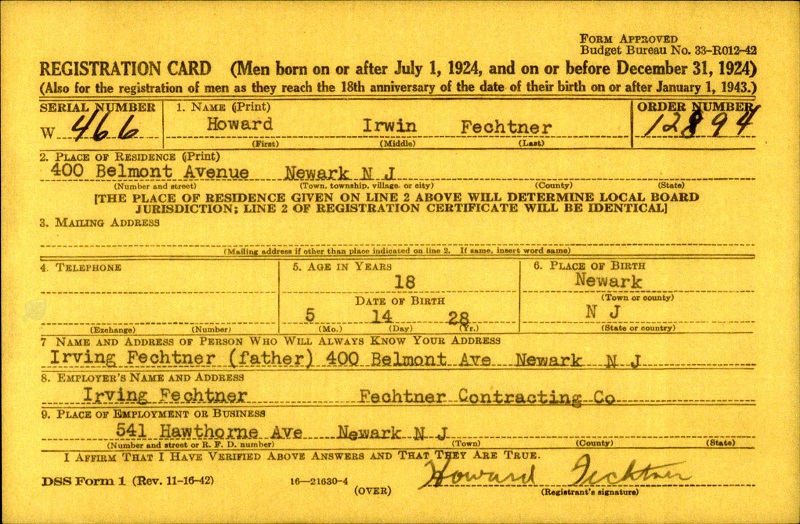 FORM APPROVED
Budget Bureau No. 33-R012-42
REGISTRATION CARD (Men born on or after July 1, 1924, and on or before December 31, 1924)
(Also for the registration of men as they reach the 18th anniversary of the date of their birth on or after January 1, 1943.)
SERIAL NUMBER 1. NAME (Print) ORDER NUMBER
W 466 Howard Irwin Fechtner 12894
(First) (Middle) (Last)
2. PLACE OF RESIDENCE (Print)
400 Belmont Avenue Newark N J
(Number and street) (Town, township, village, or city) (County) (State)
[THE PLACE OF RESIDENCE GIVEN ON LINE 2 ABOVE WILL DETERMINE LOCAL BOARD
JURISDICTION; LINE 2 OF REGISTRATION CERTIFICATE WILL BE IDENTICAL]
3. MAILING ADDRESS
(Mailing address if other than place indicated on line 2. If same, insert word same)
4. TELEPHONE 5. AGE IN YEARS 6. PLACE OF BIRTH
18 Newark
DATE OF BIRTH (Town or county)
5 14 28 N J
(Exchange) (Number) (Mo.) (Day) (Yr.) (State or country)
7 NAME AND ADDRESS OF PERSON WHO WILL ALWAYS KNOW YOUR ADDRESS
Irving Fechtner (father) 400 Belmont Ave Newark N J
8. EMPLOYER'S NAME AND ADDRESS
Irving Fechtner Fechtner Contracting Co
9. PLACE OF EMPLOYMENT OR BUSINESS
541 Hawthorne Ave Newark N J
(Number and street or R. F. D. number) (Town) (County) (State)
I AFFIRM THAT I HAVE VERIFIED ABOVE ANSWERS AND THAT THEY ARE TRUE.
DSS Form 1 (Rev. 11-16-42) 16—21630-4 Howard Fechtner
(OVER) (Registrant's signature)